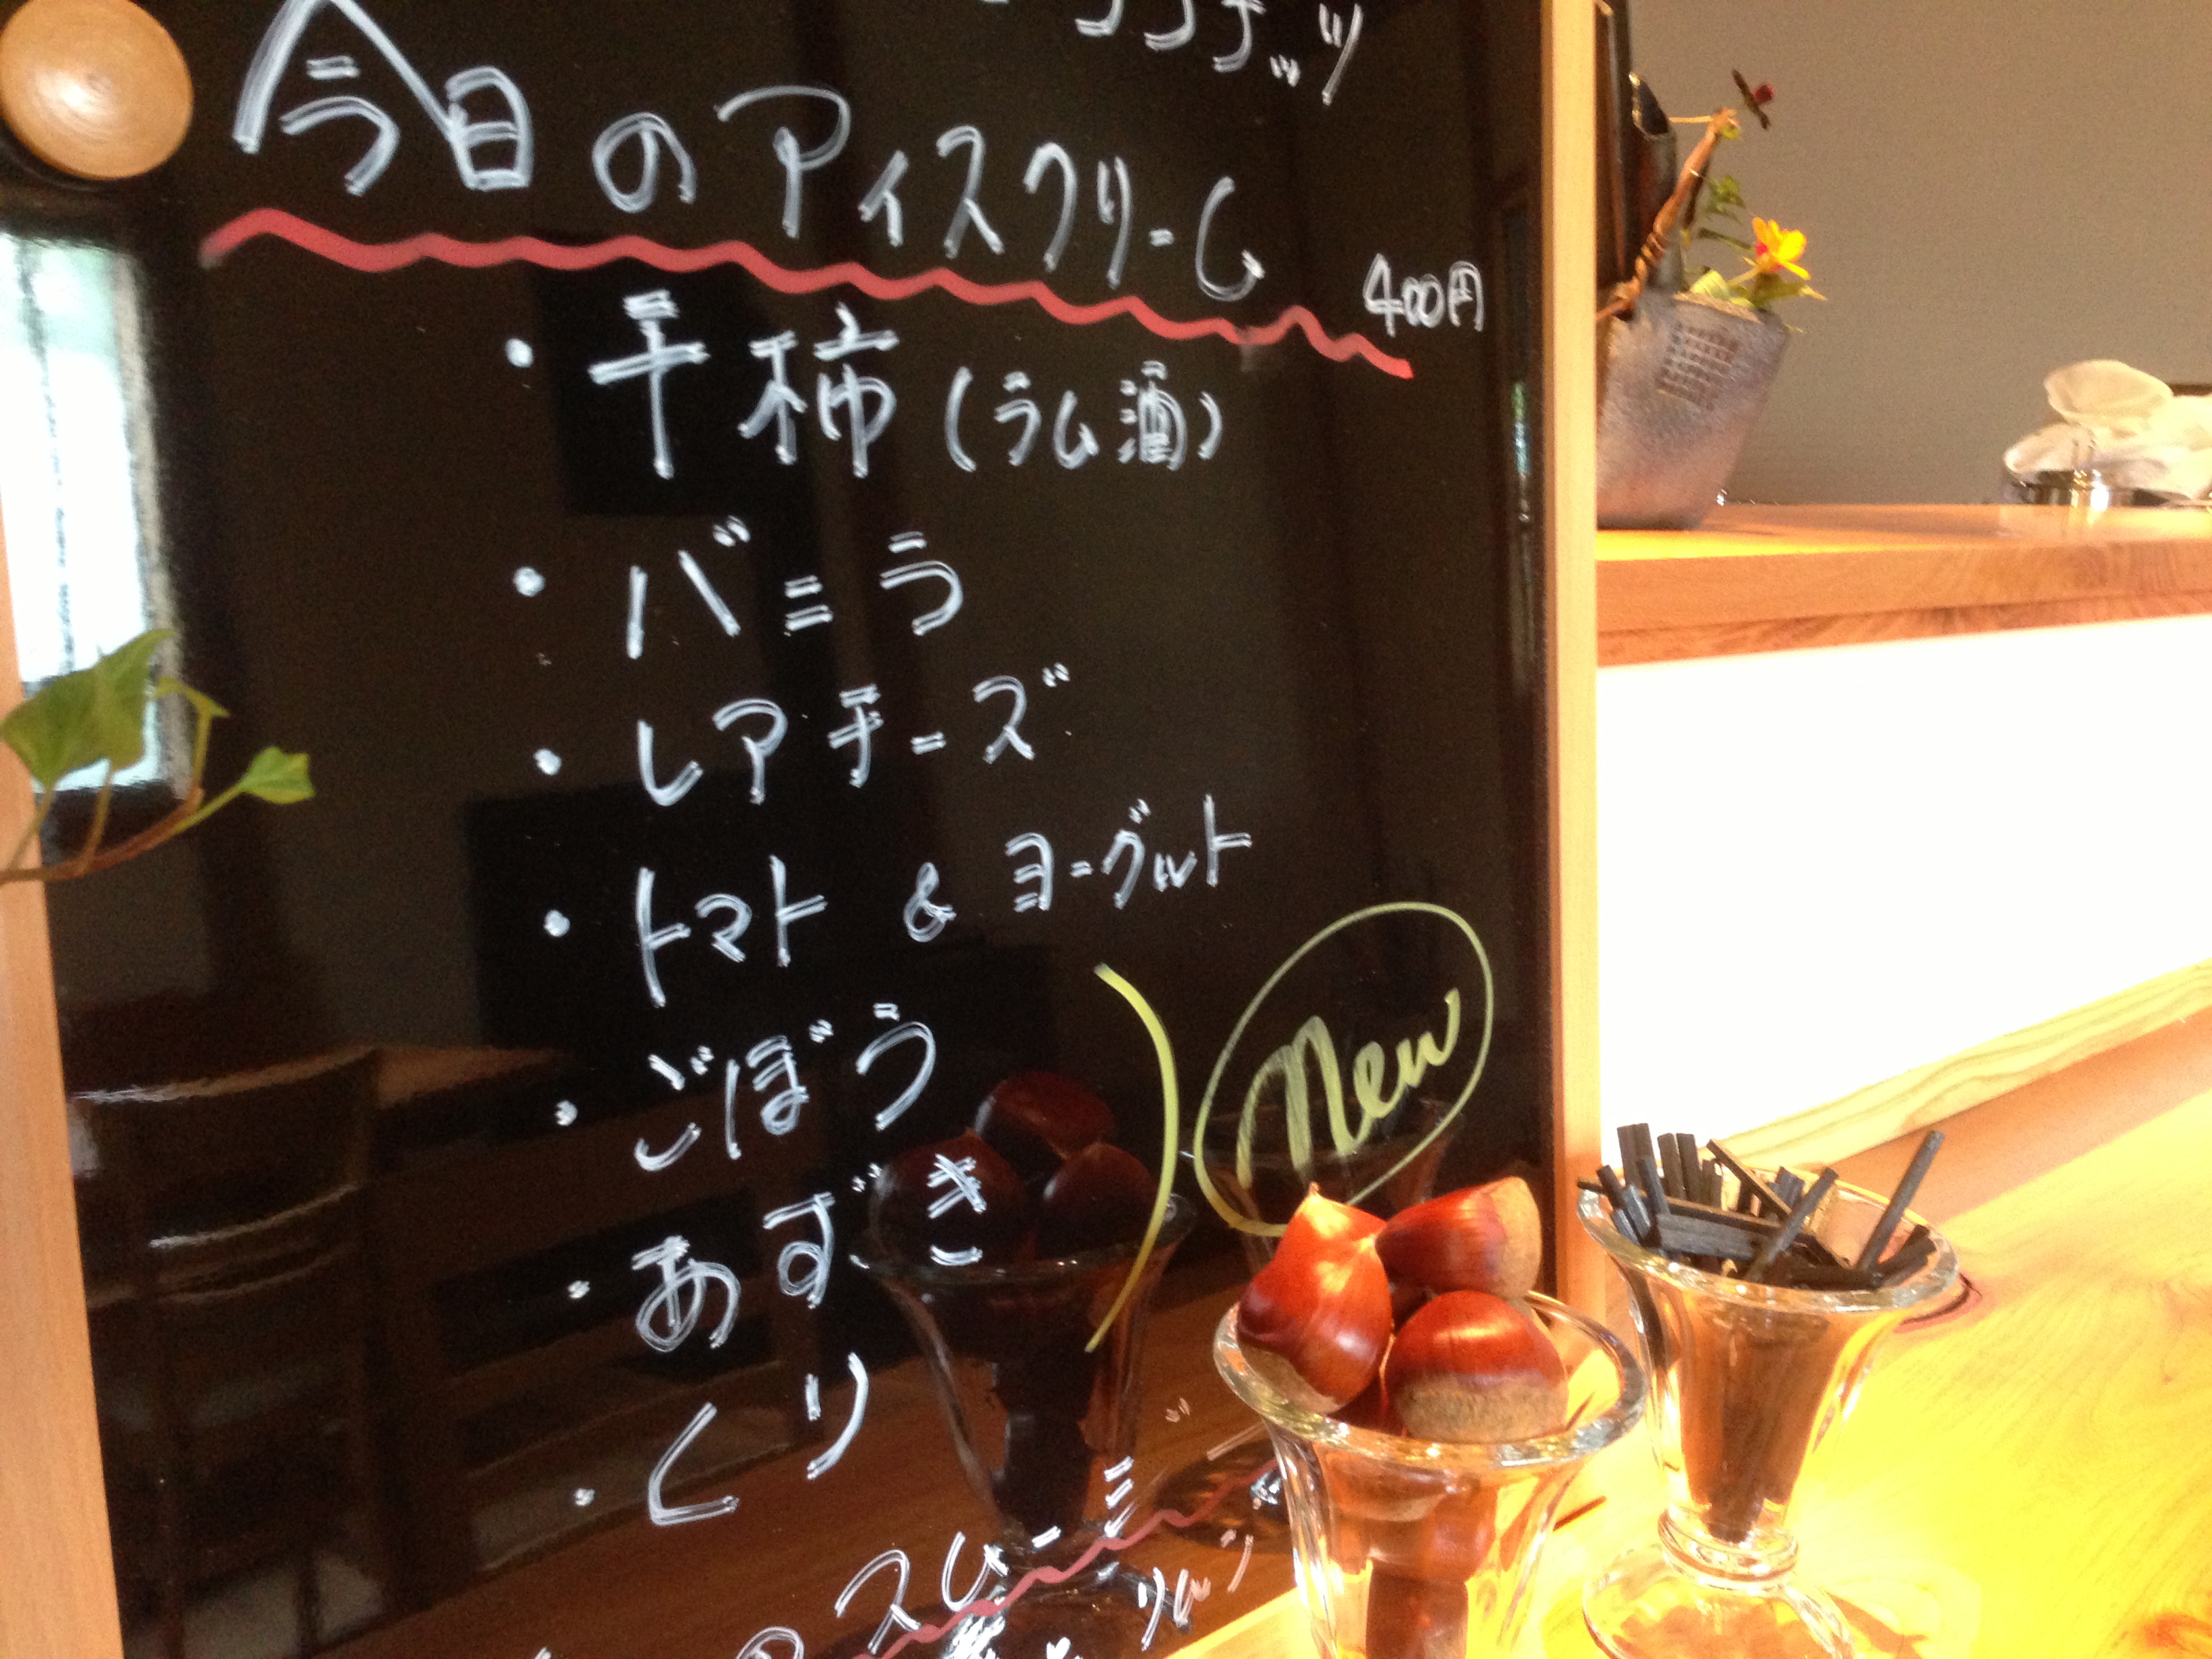 今日のアイスクリーム
400円
・干柿(ラム酒)
・バニラ
・レアチーズ
・トマト & ヨーグルト
・ごぼう
New
・あずき
・くり
のスムージー
りんご